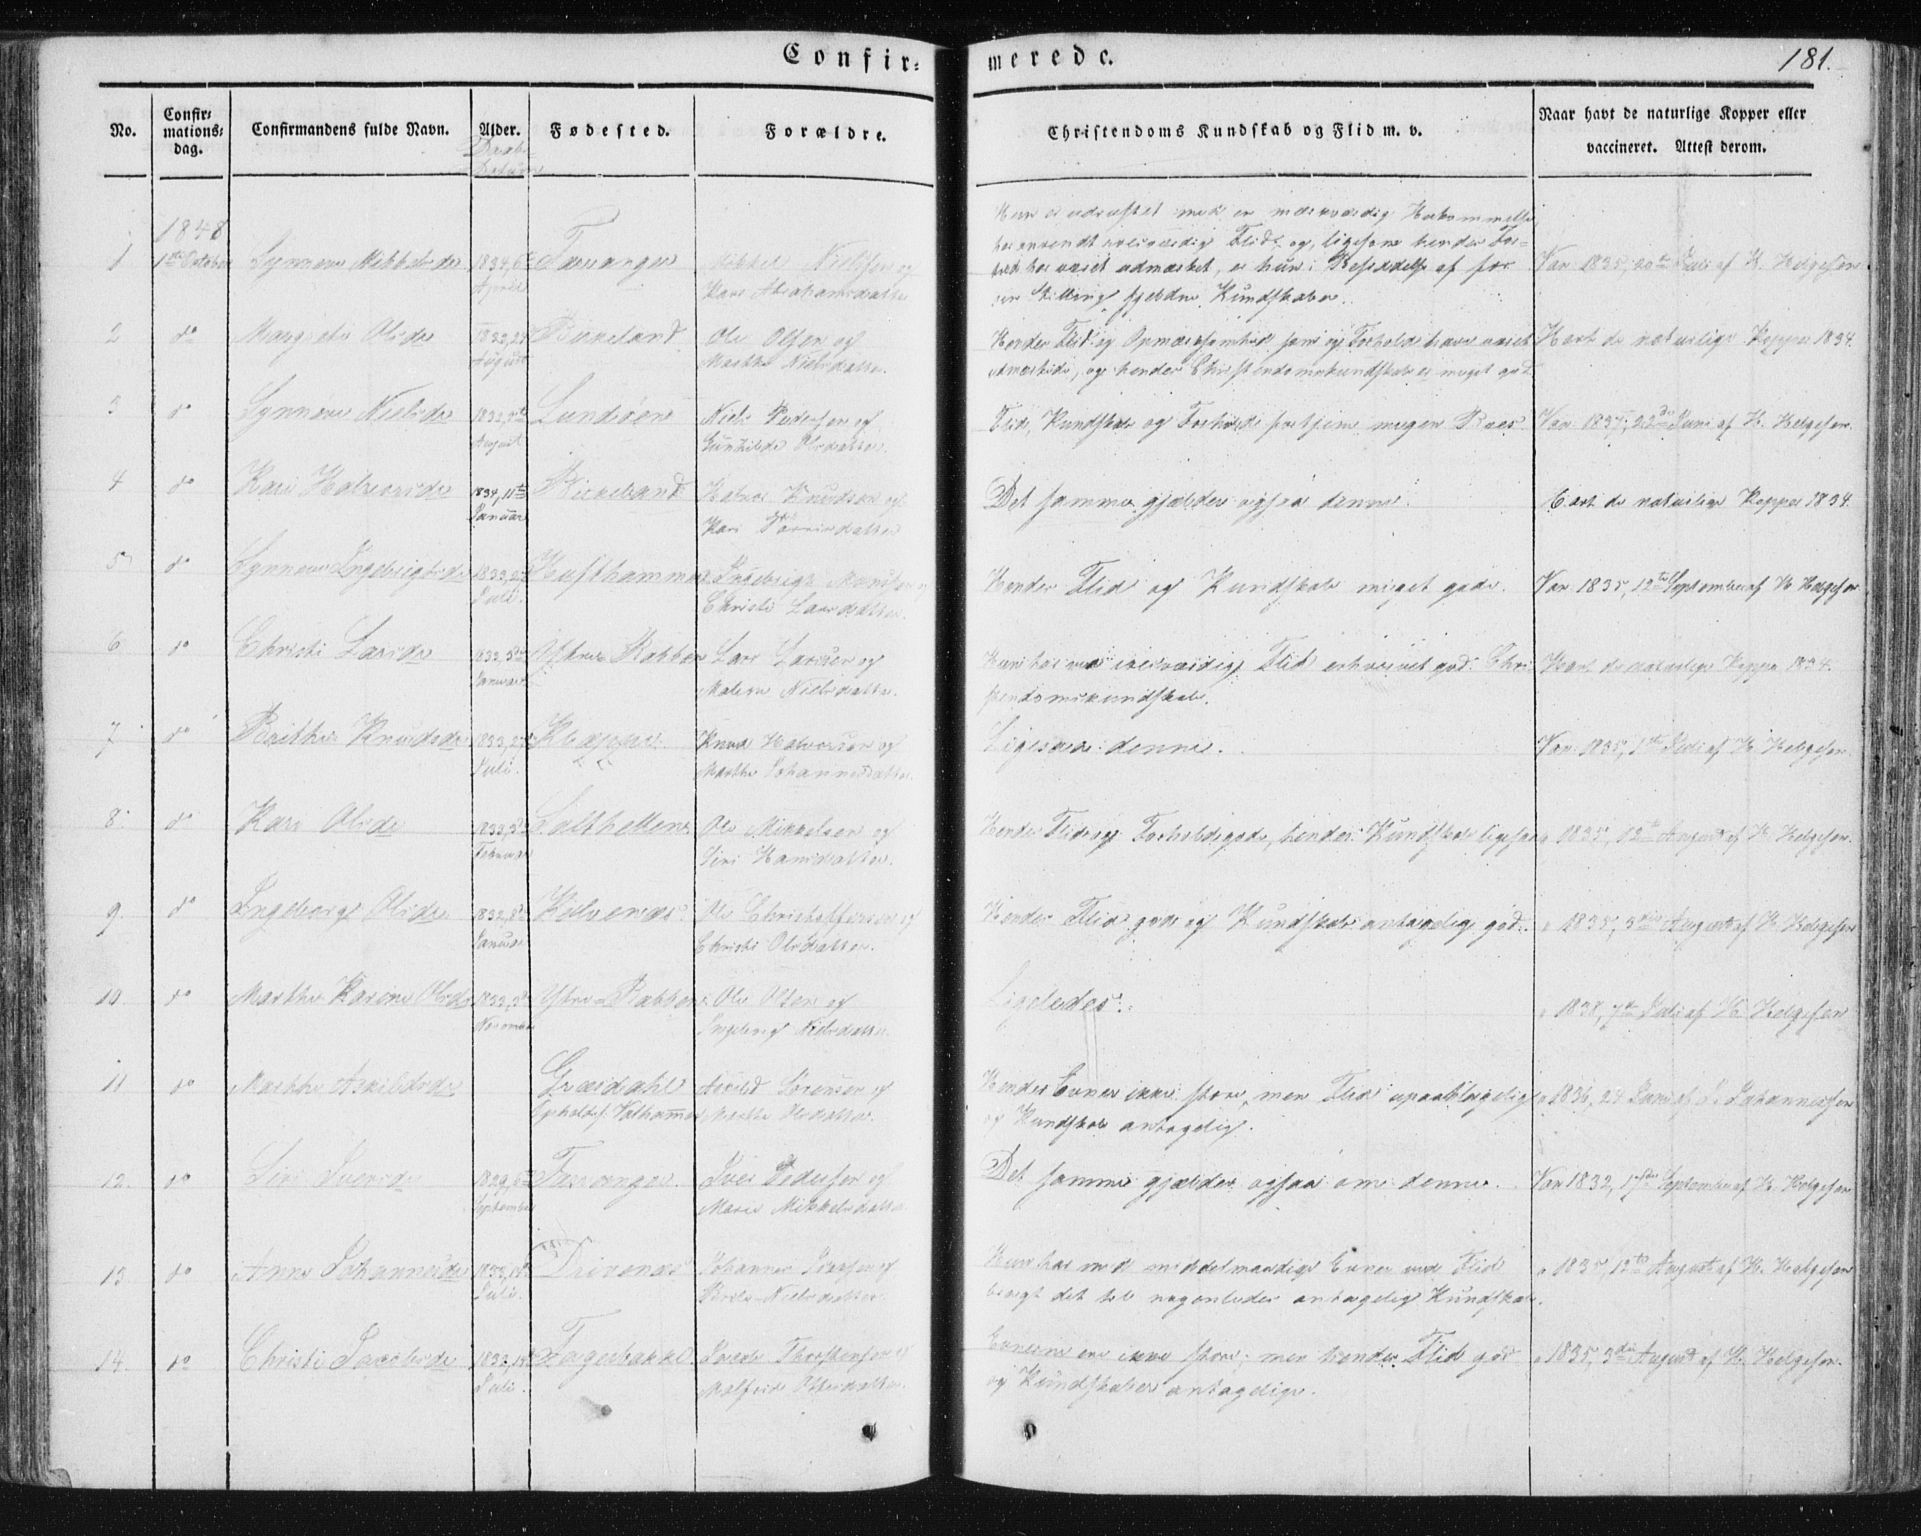 Confir-
merede.
181.
No.
Confir-
mations-
dag.
Confirmandens fulde Navn.
Alder.
Daabs
datum
Fødested.
Forældre.
Christendoms Kundskab og Flid m. v.
Naar havt de naturlige Kopper eller
vaccineret. Attest derom.
1848
1 1ste October Synneve Mikkelsdr 1834, 6te April
Mikkel Nielsen og
Kari Abrahamsdatter
Hun er udrustet med en mærkværdig Hukommelse
har anvendt Flid og ligesom hendes For-
hold har været udmærket, er hun i Besiddelse af for
sin Stilling sjeldne Kundskaber.
Vac. 1835, 20de Juli af H. Helgesen
2 do Margrete Olsdr August Birkeland
Ole Olsen og
Marthe Nielsdatter.
Hendes Flid og Opmærksomhed som og Forhold have været
udmærkede, og hendes Christendomskundskab er meget god
Havt de naturlige Kopper 1834.
3 do Synneve Nielsdr August Lundsøen
Niels Pedersen og
Gunhilde Olsdatter.
Flid, Kundskab og Forhold fortjene megen Roes
Vac. 1837, 22de Juni af H. Helgesen.
4 do Kari Halvorsdr 1834, 11te Januar Birkeland
Halvor Knudsen og
Kari
Det samme gjælder ogsaa denne.
Havt de naturlige Kopper 1834.
5 do Synneve Ingebrigtsdr 1833, Juli. Hufthammer
Ingebrigt Monsen og
Christi Larsdatter.
Hendes Flid og Kundskab meget gode.
Vac. 1835, 12te September af H. Helgesen
6 do Christi Larsdr 1833, Januar Røtthen
Lars Larsen og
Malene Nielsdatter.
Hun har ved Flid erhvervet god Chri-
stendomskundskab.
Havt de naturlige Kopper 1834.
7 do Brithe Knudsdr 1833, Juli.
Knud Halvorsen og
Marthe Johannesdatter
Ligesaa denne.
Vac. 1835, 1ste Juli af H. Helgesen.
8 do Kari Olsdr 1833, Februar
Ole Mikkelsen og
Siri Hansdatter.
Hendes Flid og Forhold gode, hendes Kundskab ligesaa
" 1835, 12te August af H. Helgesen.
9 do Ingeborg Olsdr 1832, 8de Januar Kolvenes
Ole Christoffersen og
Christi Olsdatter.
Hendes Flid god og Kundskab antagelig god.
" 1835, 3die August af H. Helgesen
10 do Marthe Karine Olsdr 1833, November
Ole Olsen og
Ingeborg Nielsdatter
Ligeledes.
" 1838, 7de Juli af H. Helgesen
11 do Marthe Askildsdr Græsdahl
Ophold Valhammer
Askild Sørensen og
Marthe Olsdatter.
Hendes Evner ikke store, men Flid upaaklagelig
og Kundskab antagelig.
" 1836, 24 Juni af Johannessen
12. do Siri Iversdr 1829, September
Iver Pedersen og
Marie Mikkelsdatter
Det samme gjælder ogsaa om denne.
Vac. 1832, 17de September af H. Helgesen
13 do Anne Johannesdr 1833, Juli. Drivenes
Johannes Iversen og
Nielsdatter.
Hun har med middelmaadige Evner ved Flid
bragt det til nogenledes antagelig Kundskab.
" 1835, 12te August af H. Helgesen
14. do Christi Jacobsdr 1833, Juli. Fagerbakke
Jacob Thorstensen og
Malfrid
Evnerne ere ikke store; men hendes Flid god
og Kundskaber antagelige.
" 1835, 3die August af H. Helgesen.